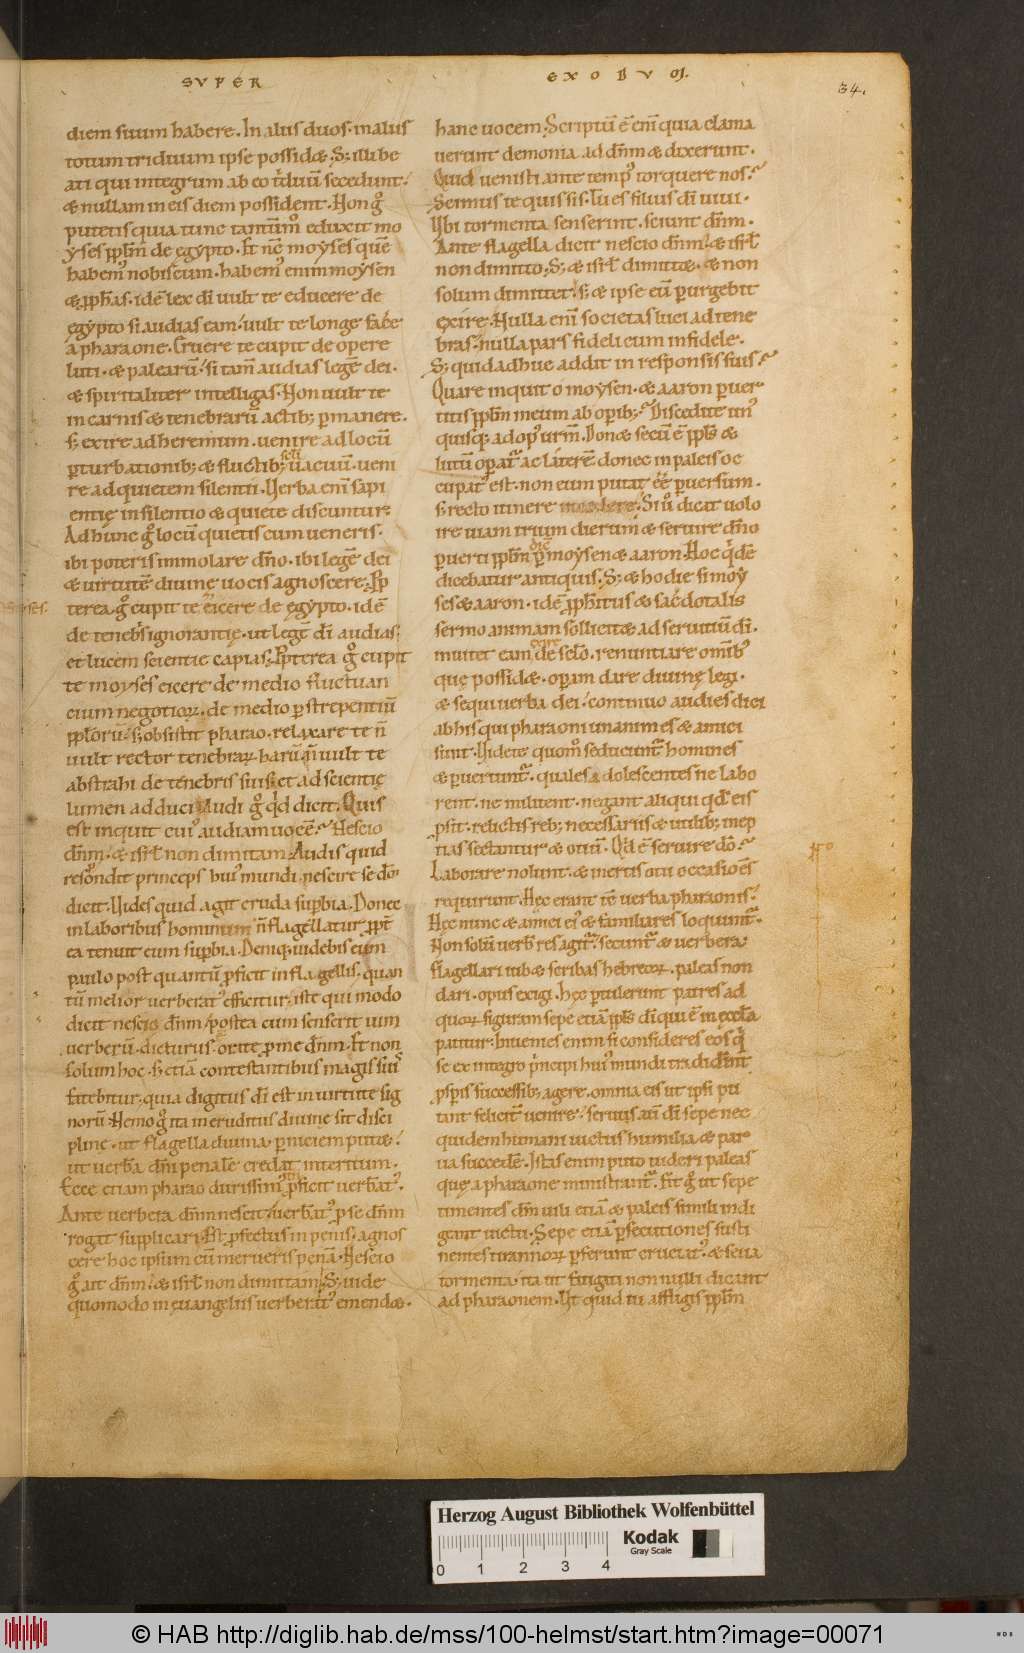 SVPER
EXODVM.
34.
diem suum habere. In aliis duos. in aliis
totum triduum ipse possidet. S; illi be
ati qui integrum ab eo t'duū secedunt.
& nullam in eis diem possident. Non g°
putetis quia tunc tantūm° eduxit mo
yses pp̄lm de egypto. Et nc̄ moyses quē
habem' nobiscum. habem' enim moysen
& pph̄as. idē lex dī vult te educere de
ęgypto si audias eam. uult te longe facere
a pharaone. Eruere te cupit de opere
luti. & palearū. si tam̄ audias legē dei.
& spiritaliter intelligas. Non uult te
in carnis & tenebrarū actib; pmanere.
s; exire ad heremum. uenire ad locū
pturbationib; & fluctib; sc̄li uacuū. ueni
re ad quietem silentii. Uerba eni sapi
entię in silentio & quiete discuntur.
Ad hunc g° locū quietis cum ueneris.
ibi poteris immolare dn̄o. ibi legē dei
& uirtutē diuinę uocis agnoscere. Pp
terea g° cupit te eicere de ęgypto. idē
de tenebris ignorantię. ut legē dī audias;
et lucem scientie capias. Ppterea g° cupit
te moyses eicere de medio fluctuan
cium negotior. de medio pstrepentiū
pplorū. s; obsistit pharao. relaxare te n̄
uult rector tenebrar harū n̄ uult te
abstrahi de tenebris suis; et ad scientię
lumen adduci. Audi g° qd dicit. Quis
est inquit cui' audiam uocē? Nescio
dn̄m. & isrl non dimittam. Audis quid
respondit princeps hui' mundi. nescire se dm̄
dicit. Uides quid agit cruda supbia. Donec
in laboribus hominum n̄ flagellatur. ppt
ea tenuit eum supbia. Deniq; uidebis eum
paulo post quantū pficit in flagellis. quan
tū melior uerberat' efficitur. iste qui modo
dicit nescio dn̄m postea cum senserit uim
uerberū. dicturus. orate p me dn̄m. Et non
solum hoc. s; etiā contestantibus magis sui
fatebitur. quia digitus dī est in uirtute sig
norū. Nemo g° ita ineruditus diuinę sit disci
pline. ut flagella diuina pniciem putet.
ut uerbera dn̄i penale credat interitum.
Ecce etiam pharao durissim' pficit uerbat'.
Ante uerbera dn̄m nescit. uerbat' p se dn̄m
rogat supplicari. Est pfectus in penis. agnos
cere hoc ipsum cū merueris penā. Nescio
g° ait dn̄m. & isrl non dimittam. S; uide
quomodo in ęuangeliis uerberat' emendet.
hanc uocem. Scriptū ē eni quia clama
uerunt demonia ad dn̄m & dixerunt.
Quid uenisti ante temp' torquere nos?
Scimus te quis sis. tu es filius dī uiui.
Ubi tormenta senserint. sciunt dn̄m.
Ante flagella dicit nescio dn̄m. & isrl
non dimitto. S; & isrl dimittet. & non
solum dimittet. s; & ipse eū purgebit
exire. Nulla eni societas luci ad tene
bras. nulla pars fideli cum infidele.
S; quid adhuc addit in responsis suis?
Quare inquit o moysen. & aaron puer
titis pplm meum ab opib;? Discedite un'
quisq; ad op' urm̄. Donec secū ē ppls &
lutū operat' ac laterem donec in paleis oc
cupat' est. non eum putat ee peruersum.
s; recto itinere incedere. Si u° dicat uolo
ire uiam trium dierum & seruire dn̄o
puerti pplm dic p moysen & aaron. Hoc qdē
dicebatur antiquis. S; & hodie si moy
ses & aaron. idē pphiticus & sacerdotalis
sermo animam sollicitet ad seruitiū dī.
inuitet eam exire de sclo. renuntiare omib'
quę possidet. operam dare diuinę legi.
& sequi uerba dei. continuo audies dici
ab his qui pharaoni unanimes & amici
sunt. Uidete quom° seducunt' homines
& puertunt'. quales adolescentes ne labo
rent. ne militent. negant aliqui qd eis
psit. relictis reb; necessariis & utilib; inep
tias sectantur & otiū. Qd ē seruire dō?
Laborare nolunt. & inertis otii occasiōes
requirunt. Hęc erant tc̄ uerba pharaonis.
Hęc nunc & amici ei' & familiares loquunt'.
Non solū uerbis res agit'. secunt' & uerbera.
Flagellari iubet scribas hebreor. paleas non
dari. opus exigi. hęc ptulerunt patres ad
quor figuram sepe etiā ppls dī qui ē in ęccla
patitur. Inuenies enim si consideres eos q
se ex integro pncipi hui' mundi tradiderunt
pspis successib; agere. omnia eis ut ipsi pu
tant feliciter uenire. seruus aū dī sepe nec
quidem humani uictus humilia & par
ua succedē. Istas enim puto uideri paleas
quę a pharaone ministrant'. Fit g° ut sepe
timentes dm̄ uili etiā & paleis simili indi
geant uictu. Sepe etiā psecutiones susti
nentes tirannor pferunt cruciat'. & seua
tormenta. ita ut fatigati non nulli dicant
ad pharaonem. Ut quid tu affligis pplm
Herzog August Bibliothek Wolfenbüttel
Kodak
Gray Scale
0 1 2 3 4
© HAB http://diglib.hab.de/mss/100-helmst/start.htm?image=00071